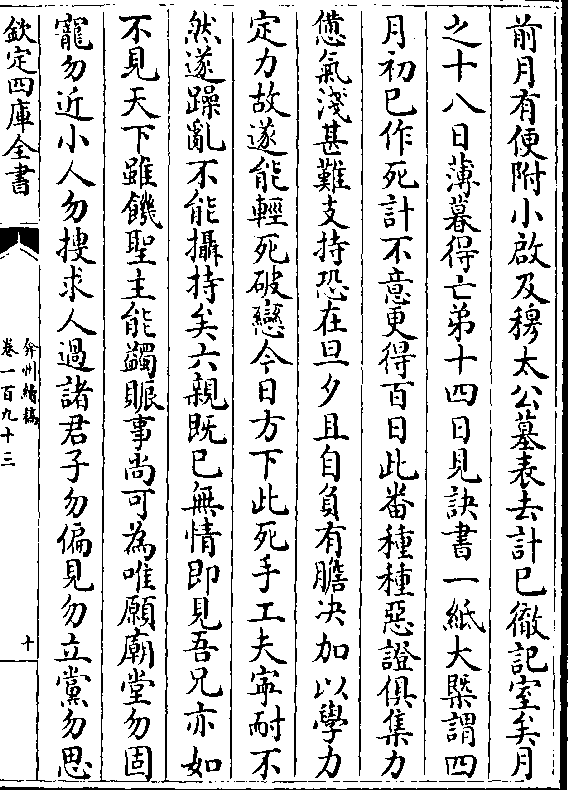 前月有便附小啟及穆太公墓表去計已徹記室矣月
之十八日薄暮得亡弟十四日見訣書一紙大槩謂四
月初已作死計不意更得百日此番種種惡證俱集力
憊氣淺甚難支持恐在旦夕且自負有膽决加以學力
定力故遂能輕死破戀今日方下此死手工夫寜耐不
然遂躁亂不能攝持矣六親既已無情即見吾兄亦如
不見天下雖饑聖主能蠲賑事尚可為唯願廟堂勿固
寵勿近小人勿搜求人過諸君子勿偏見勿立黨勿思
欽定四庫全書
弇州續稿
卷一百九十三
十